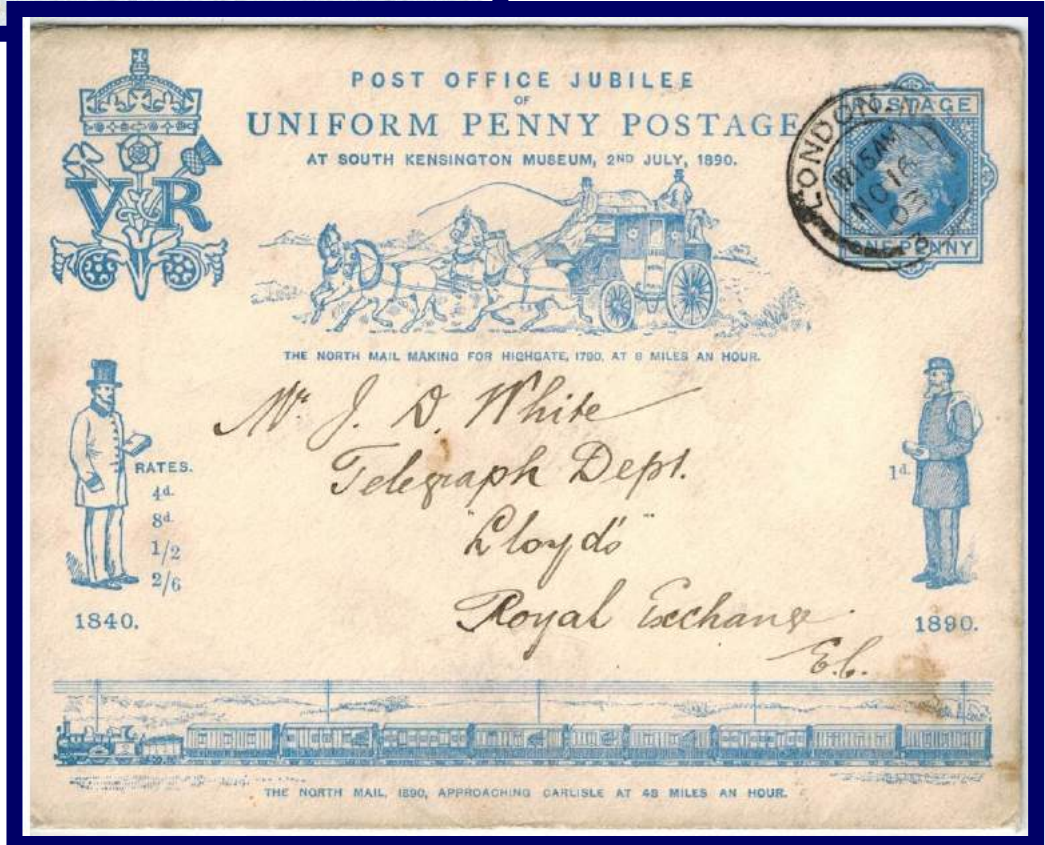 POST OFFICE JUBILEE
OF
UNIFORM PENNY POSTAGE
AT SOUTH KENSINGTON MUSEUM, 2ND JULY, 1890.
VR
POSTAGE
ONE PENNY
LONDON.
12 15 AM
NO 16
03
THE NORTH MAIL MAKING FOR HIGHGATE, 1790, AT 8 MILES AN HOUR.
Mr J. D. White
Telegraph Dept.
"Lloyd's"
Royal Exchange
E.C.
RATES.
4d.
8d.
1/2
2/6
1840.
1d.
1890.
THE NORTH MAIL, 1890, APPROACHING CARLISLE AT 48 MILES AN HOUR.